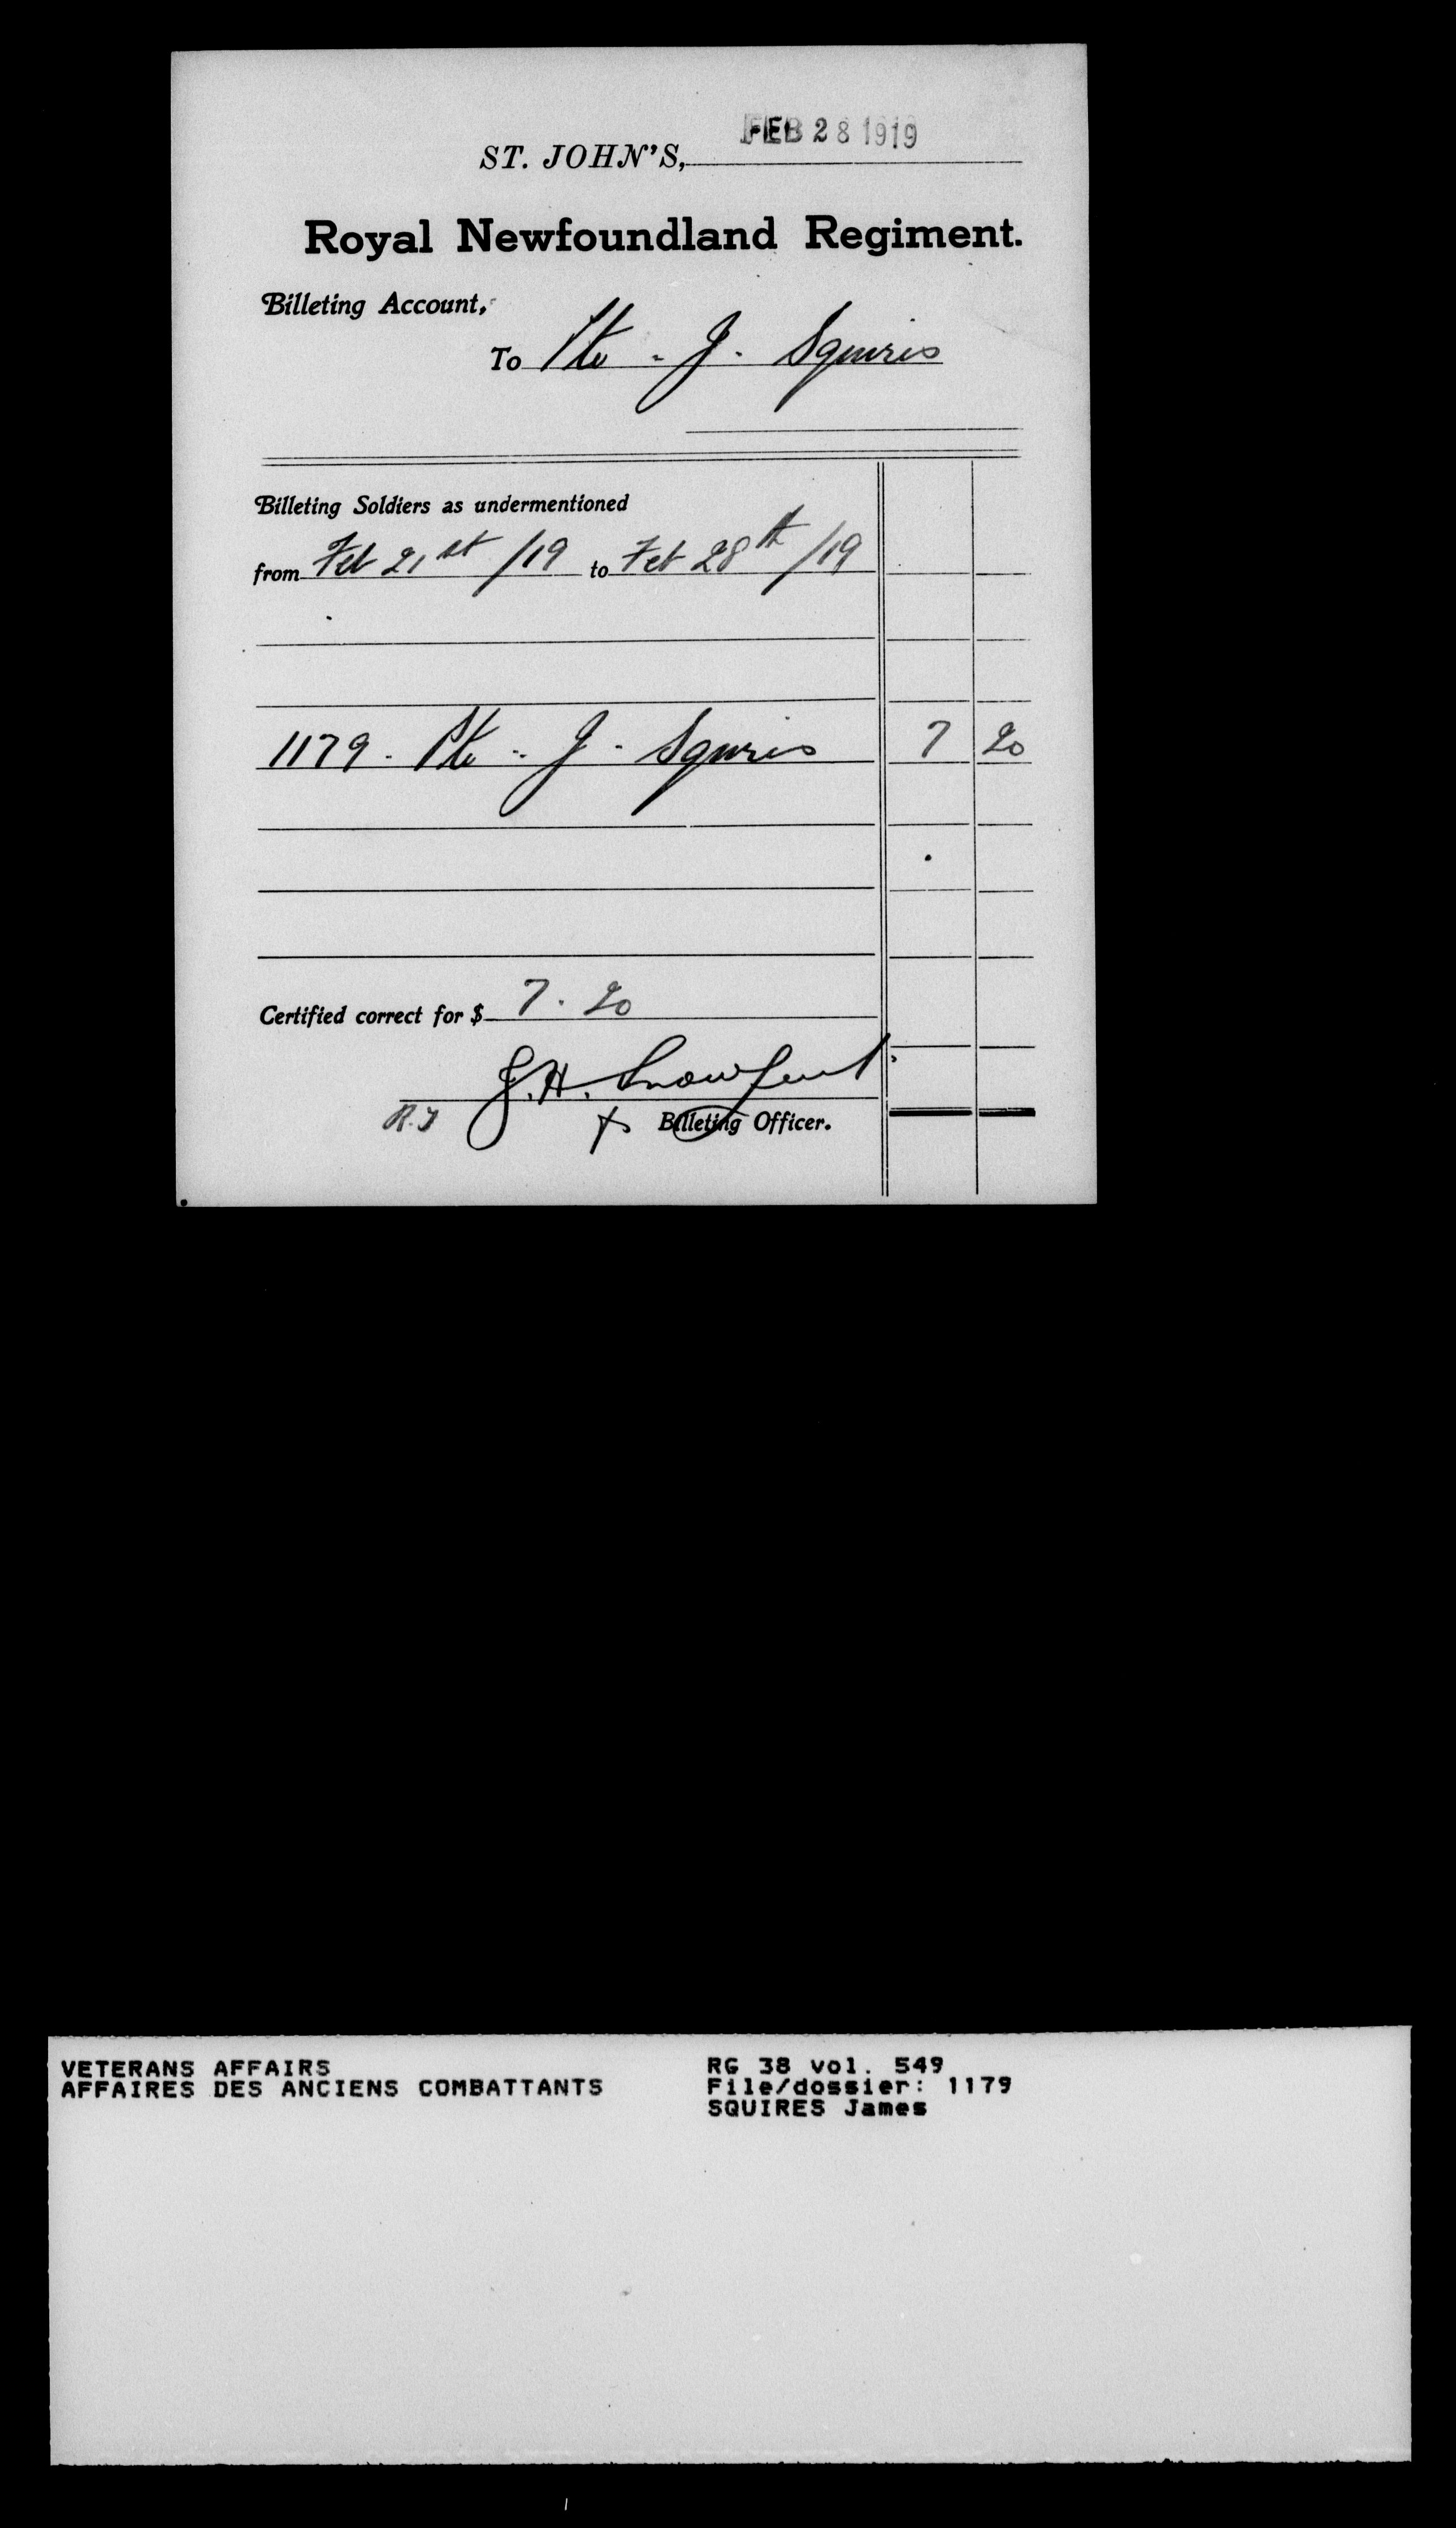 FEB 28 1919
ST. JOHN'S,
Royal Newfoundland Regiment.
Billeting Account,
To Pte - J. Squires
Billeting Soldiers as undermentioned
from Feb 21st /19 to Feb 28th /19
1179 - Pte - J - Squires 7 20
Certified correct for $ 7.20
J.H. Snow
Billeting Officer.
VETERANS AFFAIRS
AFFAIRES DES ANCIENS COMBATTANTS
RG 38 vol. 549
File/dossier: 1179
SQUIRES James